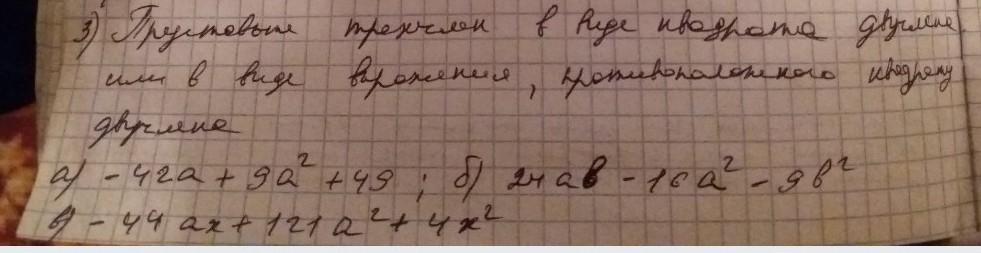 3) Представьте трехчлен в виде квадрата двучлена
или в виде выражения, противоположного квадрату
двучлена
а) -42a + 9a² + 49; б) 24ab - 16a² - 9b²
в) -44ax + 121a² + 4x²